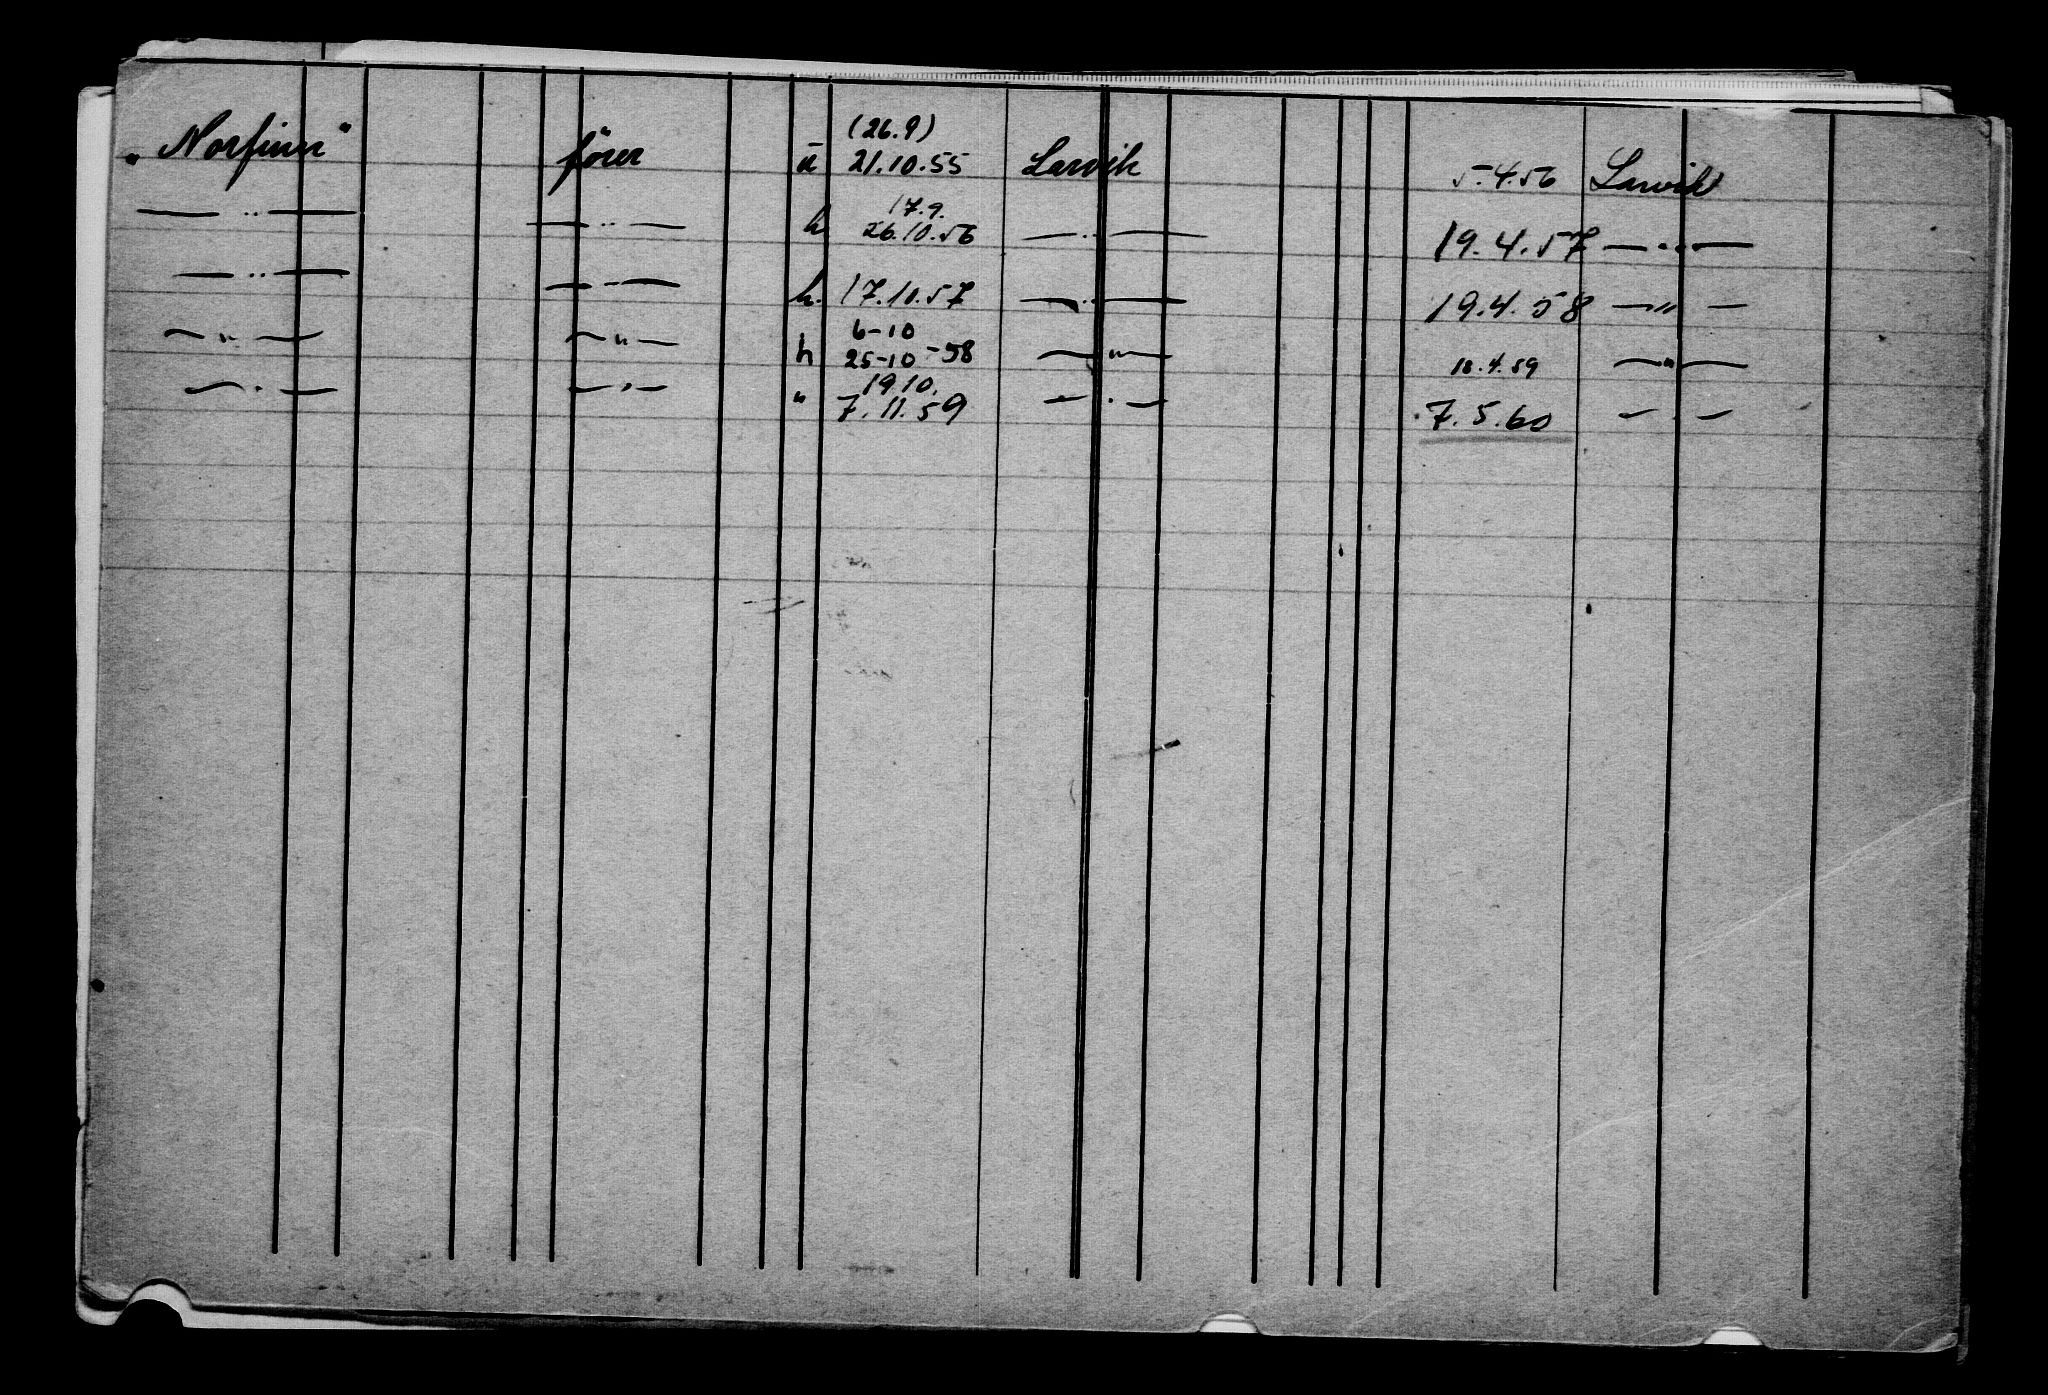 „Norfinn" fører ū (26.9) 21.10.55 Larvik 5.4.56 Larvik
— " — — " — h 17.9. 26.10.56 — " — 19.4.57 — " —
— " — — " — h. 17.10.57 — " — 19.4.58 — " —
— " — — " — h 6-10 25-10-58 — " — 18.4.59 — " —
— " — — " — " 19.10. 7.11.59 — " — 7.5.60 — " —